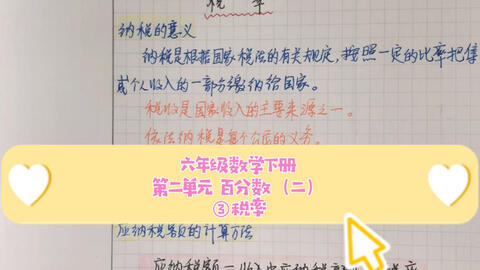 税 率
纳税的意义
纳税是根据国家税法的有关规定，按照一定的比率把集
或个人收入的一部分缴纳给国家。
税收是国家收入的主要来源之一。
依法纳税是每个公民的义务。
六年级数学下册
第二单元 百分数（二）
③税率
应纳税额的计算方法
应纳税额＝收入中应纳税部分